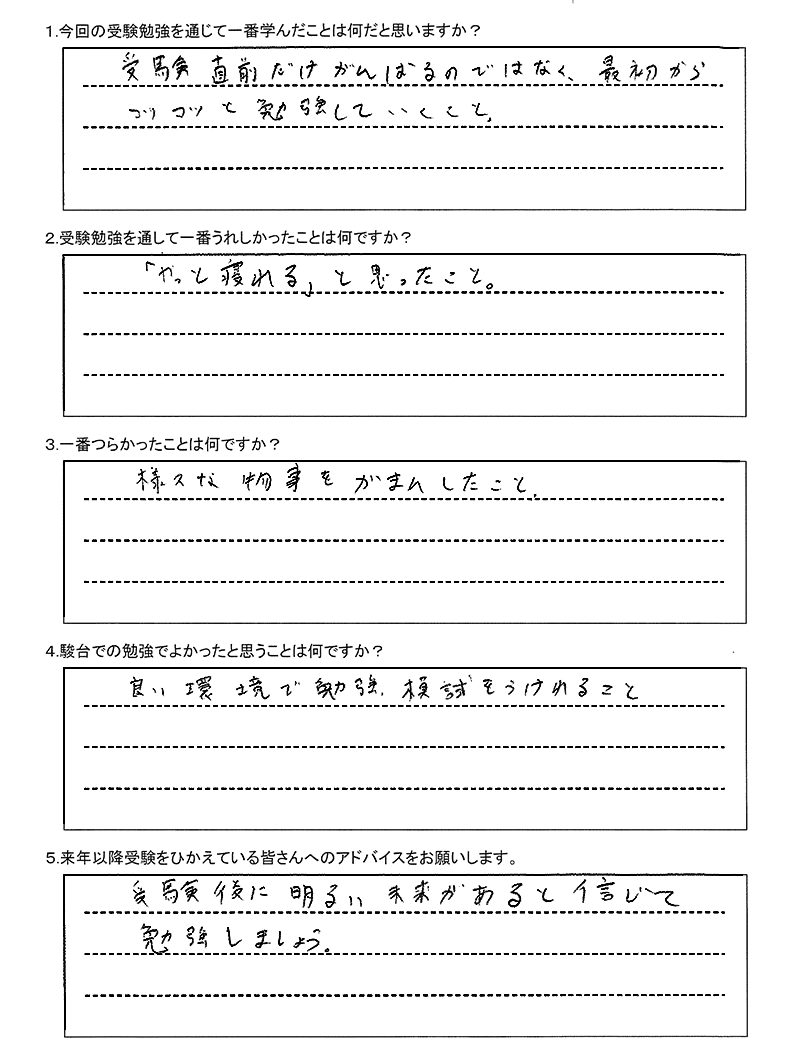 1.今回の受験勉強を通じて一番学んだことは何だと思いますか？
受験直前だけがんばるのではなく、最初から
コツコツと勉強していくこと。
2.受験勉強を通して一番うれしかったことは何ですか？
「やっと寝れる」と思ったこと。
3.一番つらかったことは何ですか？
様々な物事をがまんしたこと。
4.駿台での勉強でよかったと思うことは何ですか？
良い環境で勉強、模試をうけれること
5.来年以降受験をひかえている皆さんへのアドバイスをお願いします。
受験後に明るい未来があると信じて
勉強しましょう。